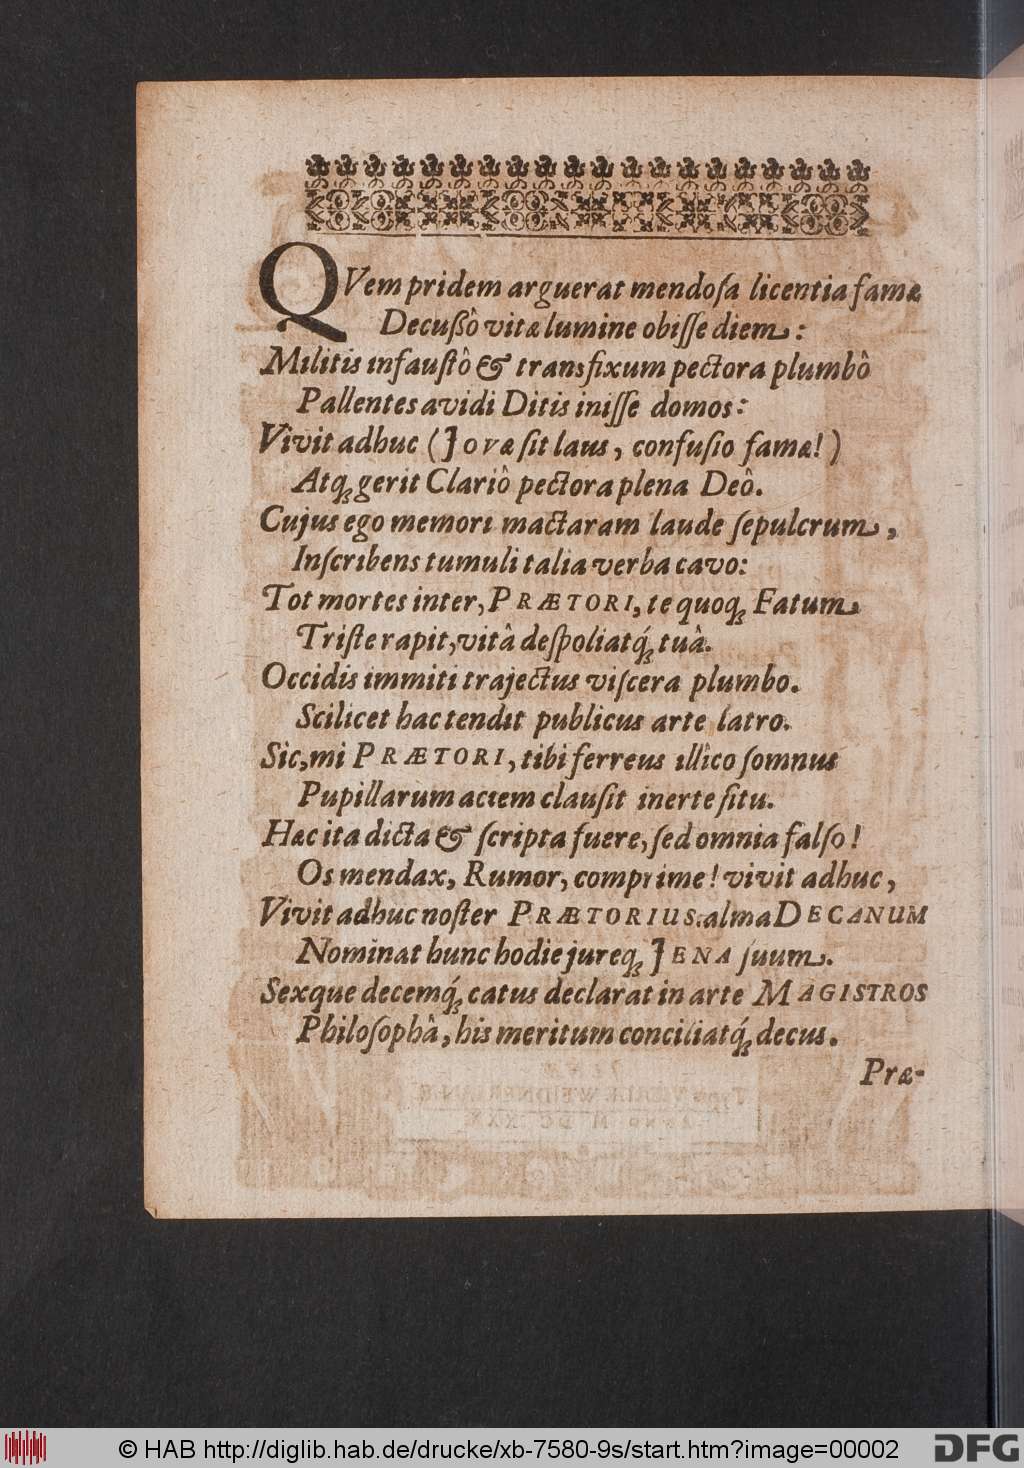 QVem pridem arguerat mendoſa licentia famæ
Decuſsô vitæ lumine obiſſe diem:
Militis infauſtô & transfixum pectora plumbô
Pallentes avidi Ditis iniſſe domos:
Vivit adhuc (JOVÆ ſit laus, confuſio famæ!)
Atq́ue gerit Clariô pectora plena Deô.
Cujus ego memori mactaram laude ſepulcrum,
Inſcribens tumuli talia verba cavo:
Tot mortes inter, PRÆTORI, te quoq; Fatum
Triſte rapit, vitâ deſpoliatq́; tuâ.
Occidis immiti trajectus viſcera plumbo.
Scilicet hac tendit publicus arte latro.
Sic, mi PRÆTORI, tibi ferreus illîco ſomnus
Pupillarum aciem clauſit inerte ſitu.
Hæc ita dicta & ſcripta fuere, ſed omnia falſo!
Os mendax, Rumor, comprime! vivit adhuc,
Vivit adhuc noſter PRÆTORIUS. alma DECANUM
Nominat hunc hodie jureq; JENA ſuum.
Sexque decemq́; catus declarat in arte MAGISTROS
Philoſophâ, his meritum conciliatq́; decus.
Præ-
© HAB http://diglib.hab.de/drucke/xb-7580-9s/start.htm?image=00002
DFG